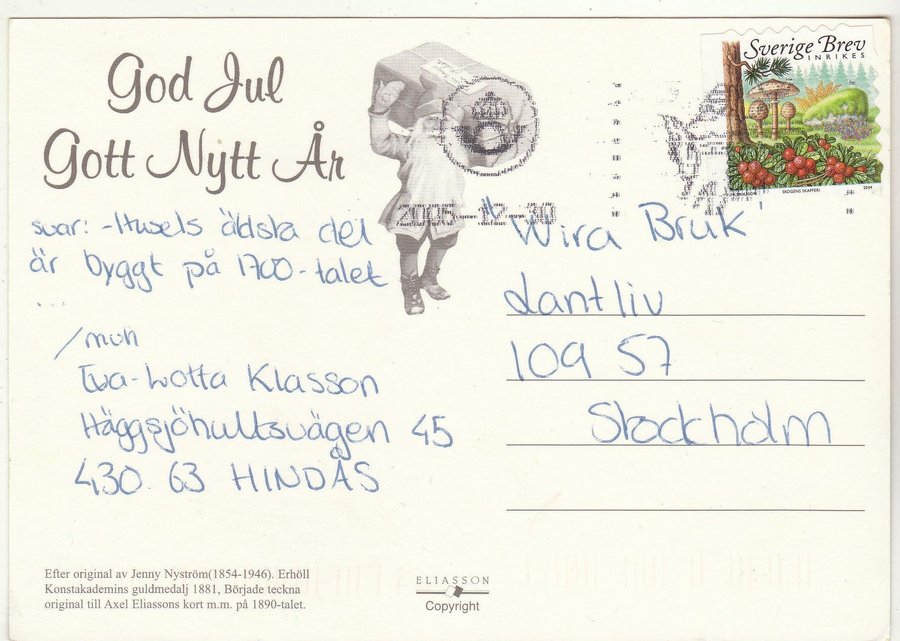 God Jul
Gott Nytt År
svar: - Husets äldsta del
är byggt på 1700-talet
...
/mvh
Eva-Lotta Klasson
Häggsjöhultsvägen 45
430 63 HINDÅS
Efter original av Jenny Nyström(1854-1946). Erhöll
Konstakademins guldmedalj 1881, Började teckna
original till Axel Eliassons kort m.m. på 1890-talet.
ELIASSON
Copyright
Sverige Brev
INRIKES
SKOGENS SKAFFERI
2004
'Wira Bruk'
Lantliv
109 57
Stockholm